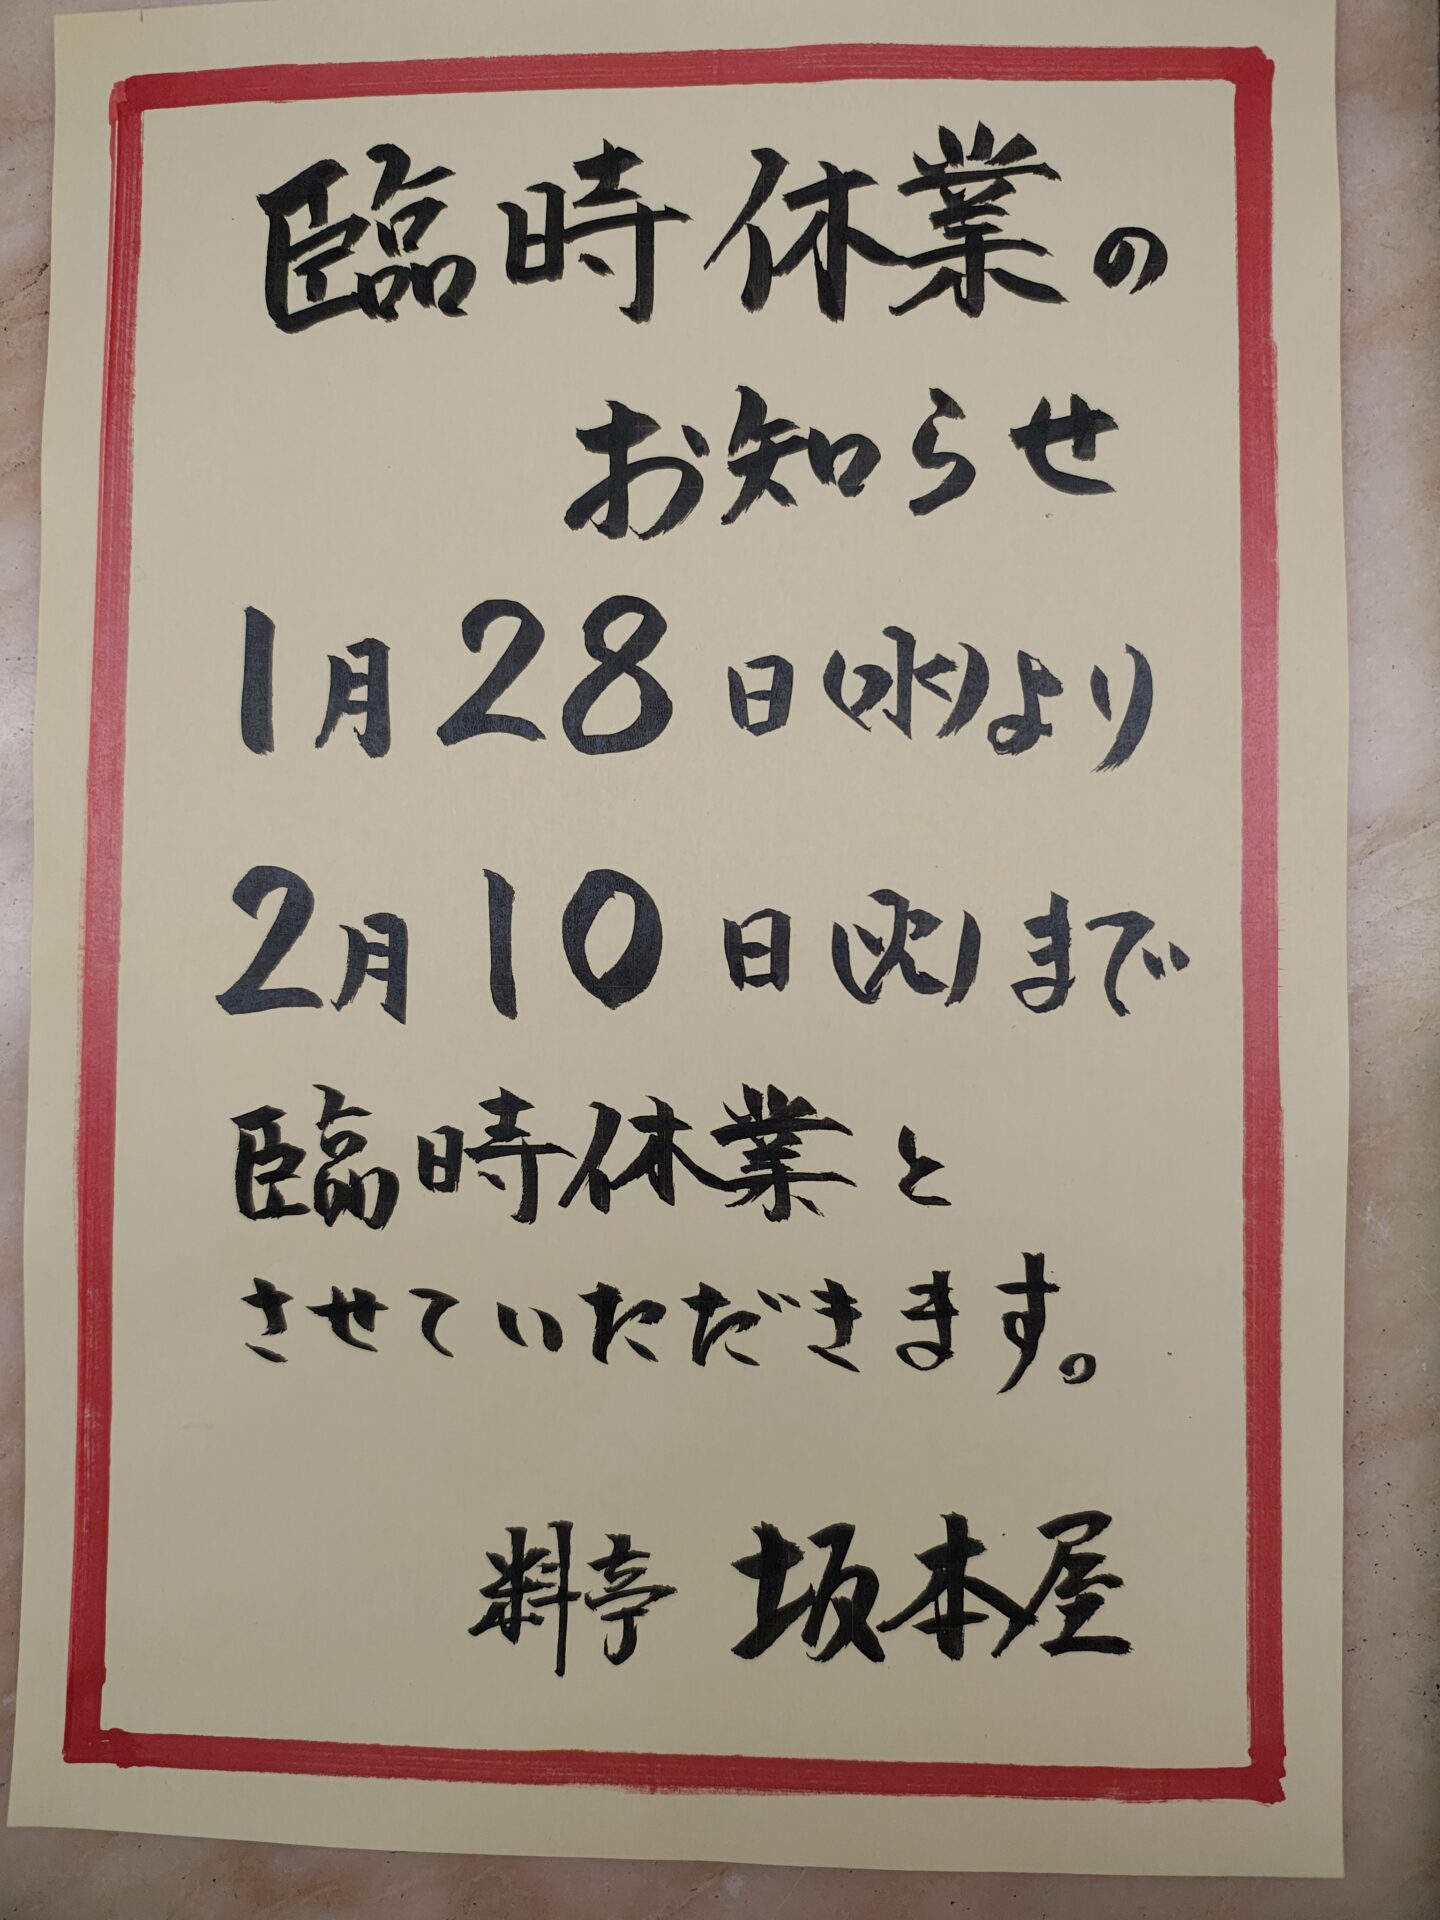 臨時休業の
お知らせ
1月28日(水)より
2月10日(火)まで
臨時休業と
させていただきます。
料亭 坂本屋